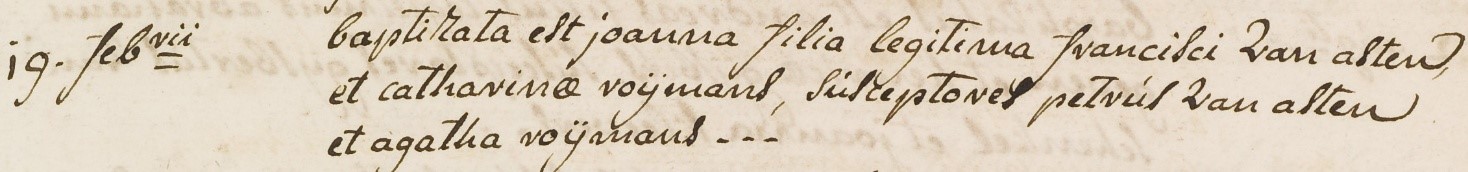 19. feb<sup>rii</sup> baptizata est joanna filia legitima francisci van asten,
et catharinæ roÿmans, súsceptores petrús van asten
et agatha roÿmans ---